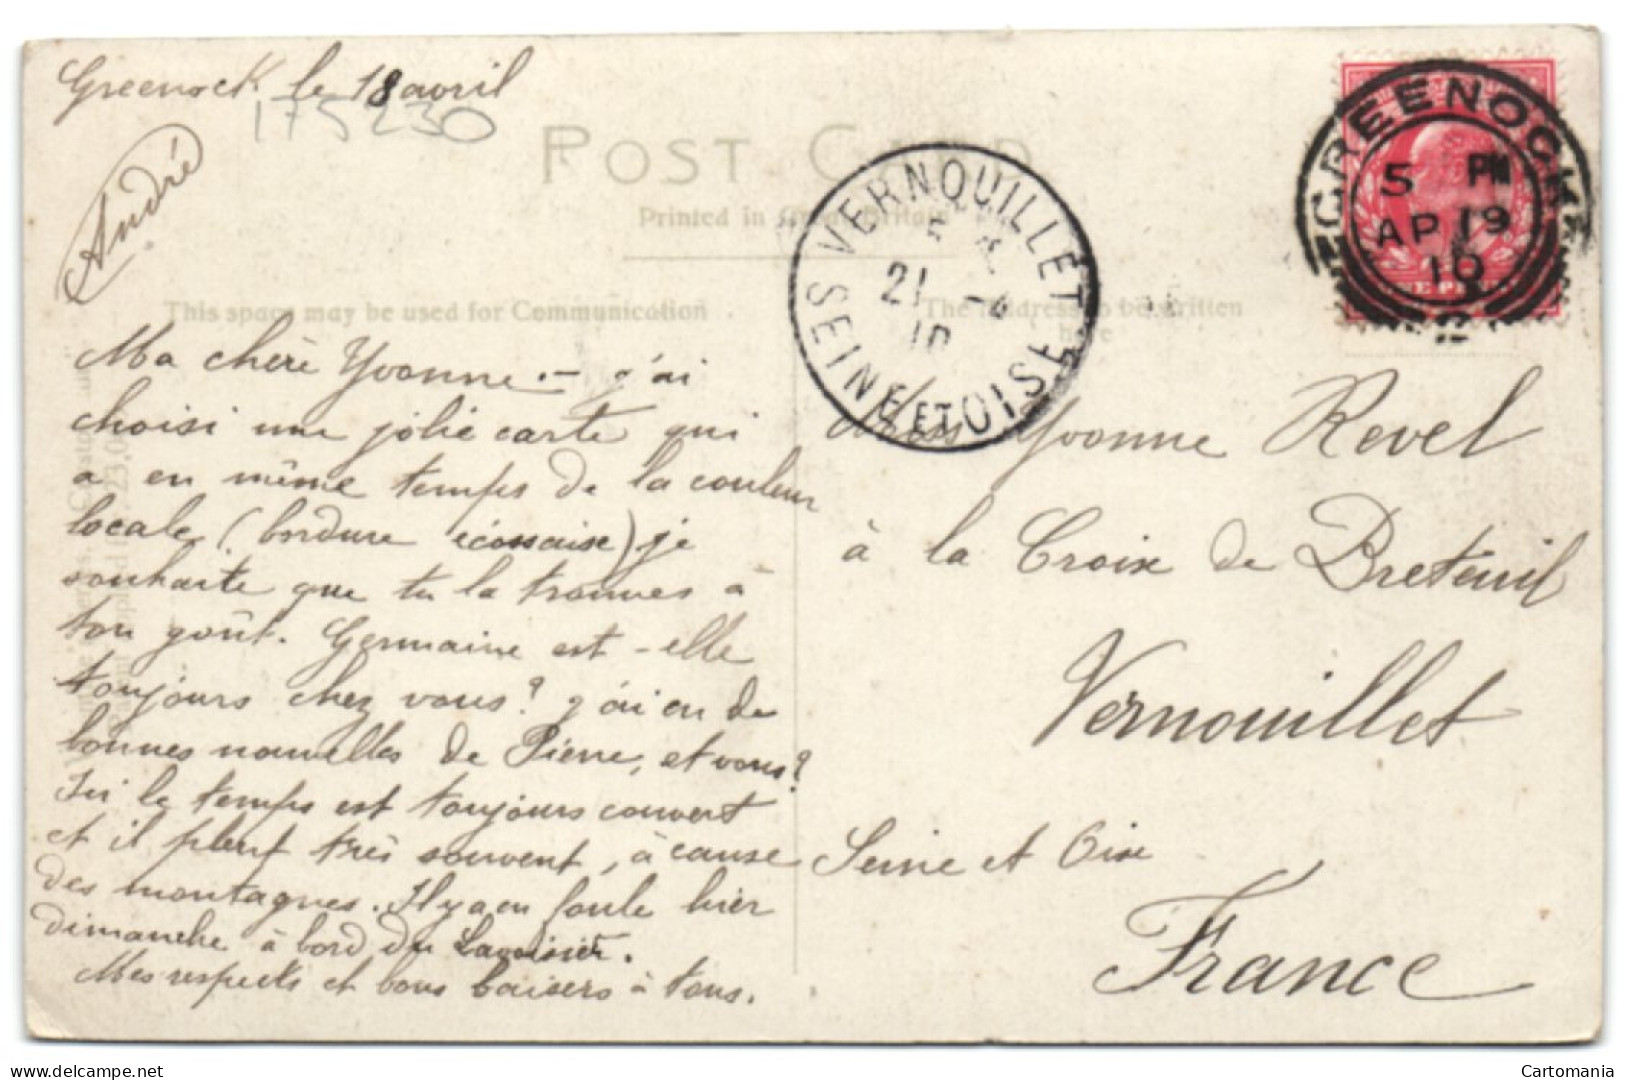 Greenock le 18 avril
175230
André
POST CARD
Printed in Great Britain
This space may be used for Communication
The Address to be written
here
GREENOCK
5 PM
AP 19
10
VERNOUILLET
21 -4
10
SEINE ET OISE
Ma chère Yvonne. — j'ai
choisi une jolie carte qui
a en même temps de la couleur
locale (bordure écossaise) je
souhaite que tu la trouves à
ton goût. Germaine est-elle
toujours chez vous? j'ai eu de
bonnes nouvelles de Pierre, et vous?
Ici le temps est toujours couvert
et il pleut très souvent, à cause
des montagnes. Il y a eu foule hier
dimanche à bord du Lavoisier.
Mes respects et bons baisers à tous.
Yvonne Revel
à la Croix de Breteuil
Vernouillet
Seine et Oise
France
Cartomania